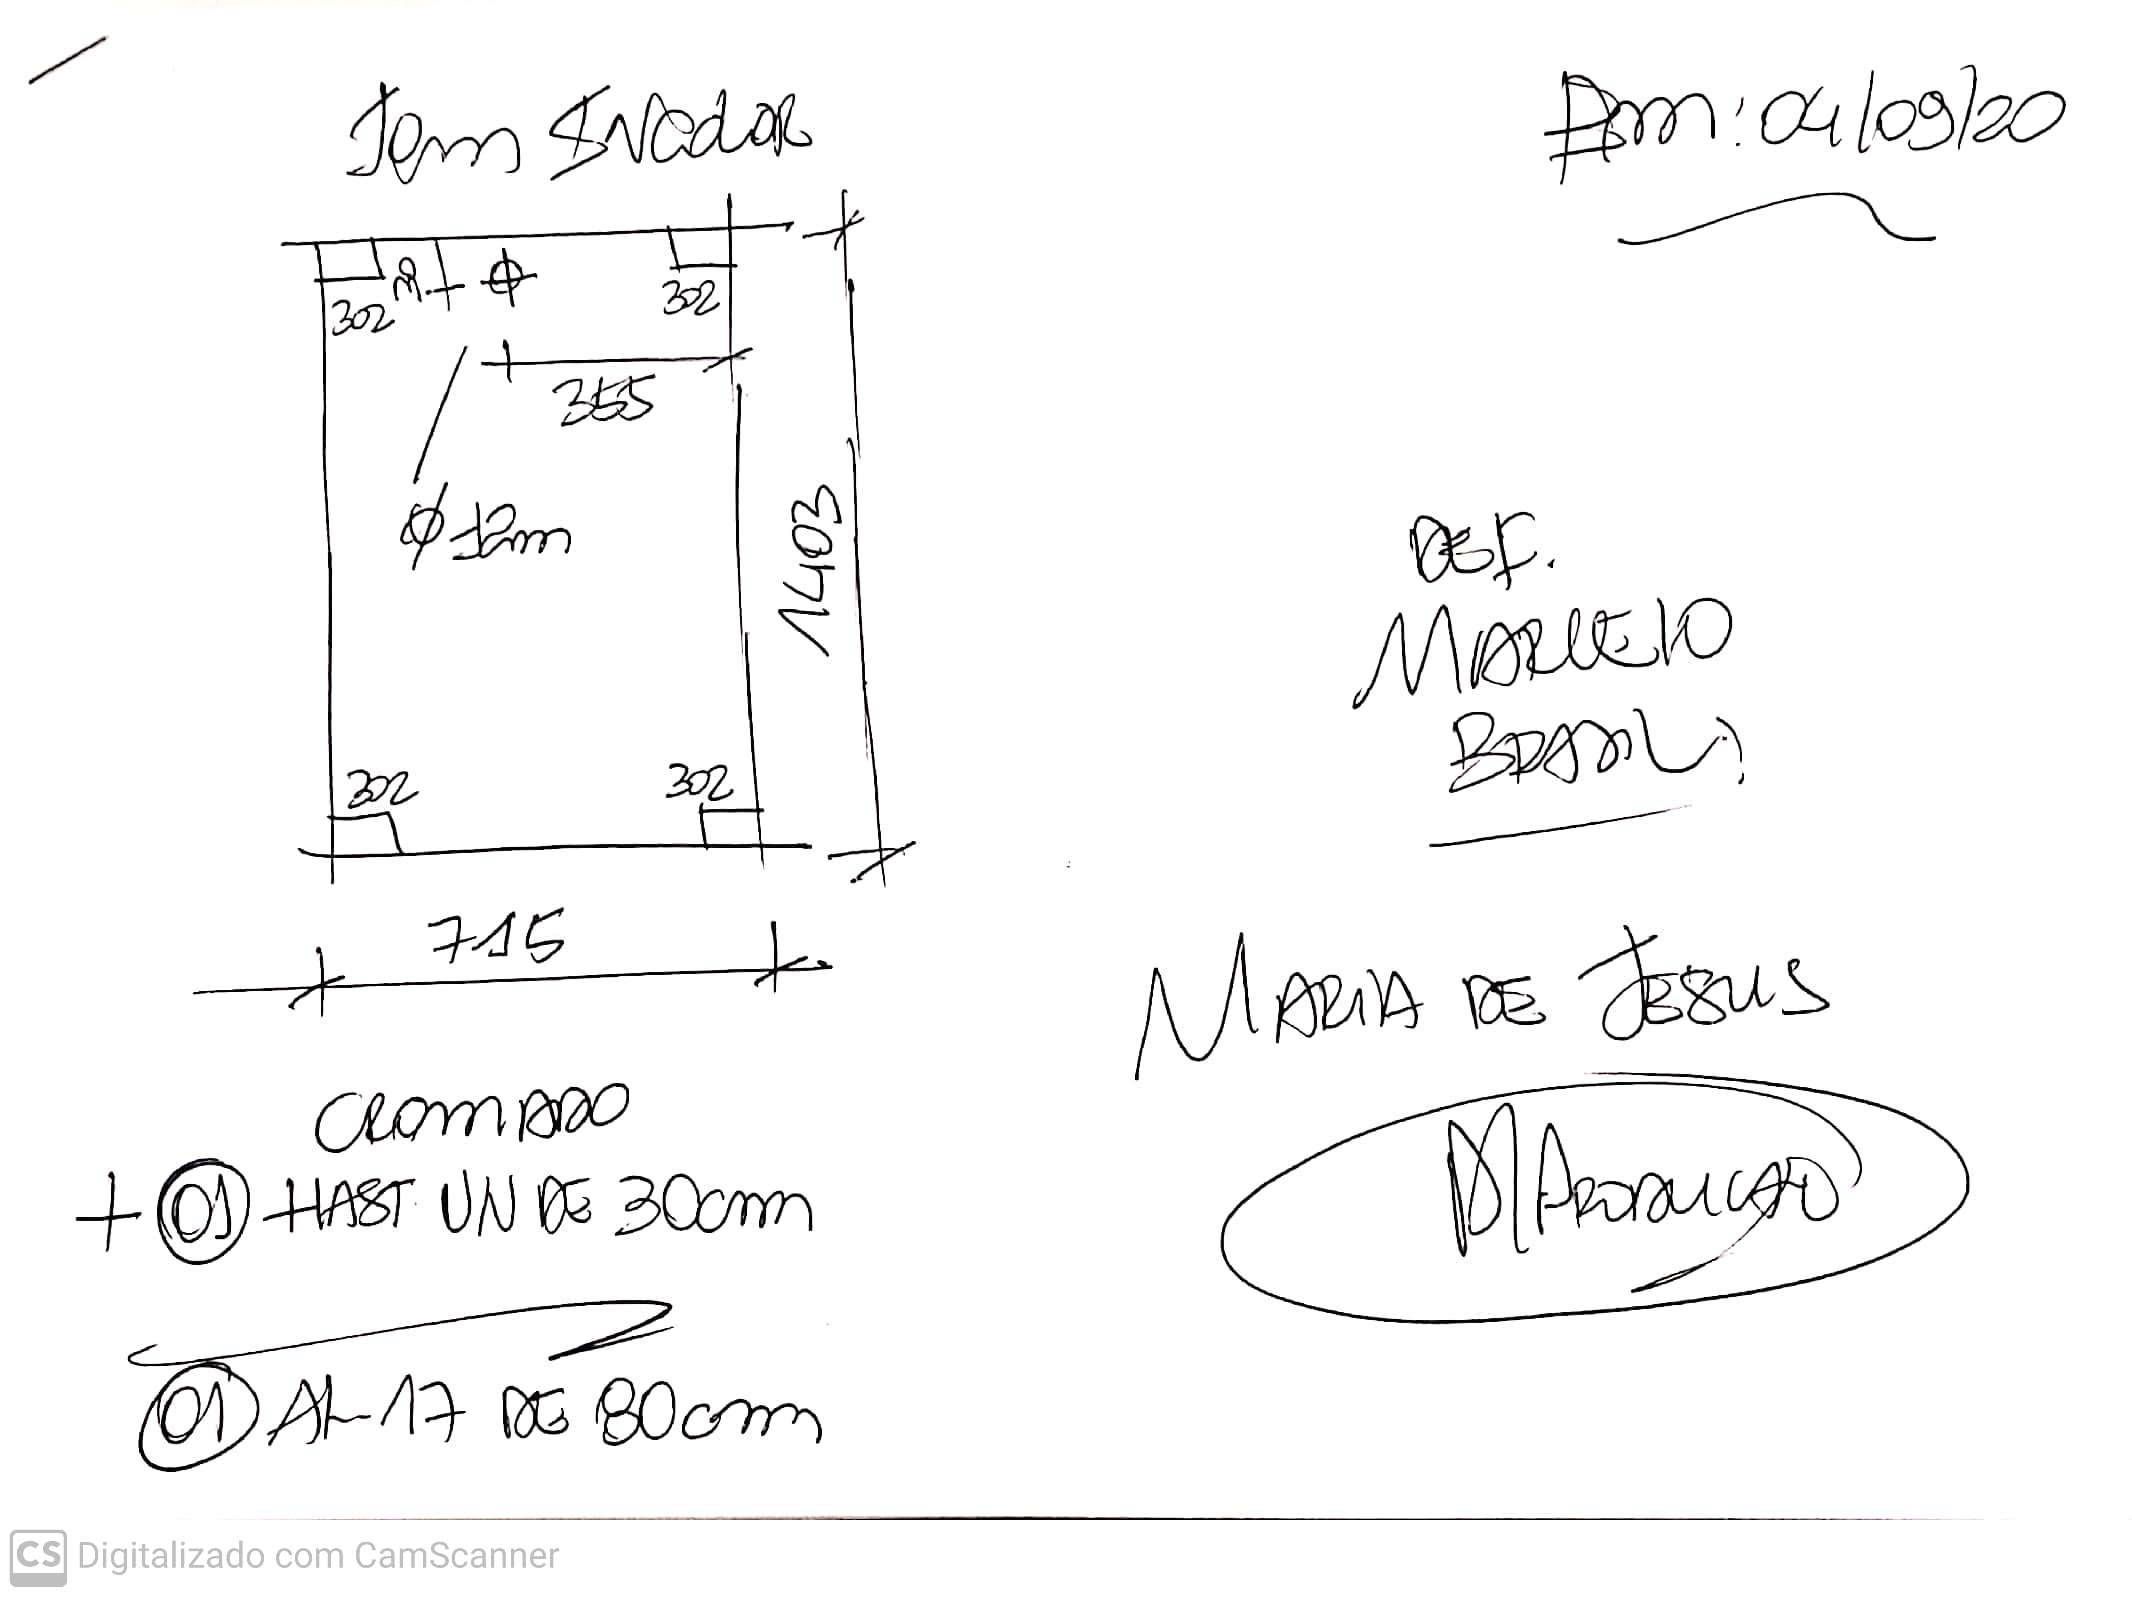 04/09/20
302
302
355
Ø 12m
1403
302
302
715
CROMADO
+ 01 HAST UN DE 30cm
01 AL-17 DE 80cm
REF.
MARCELO
BRASIL
MARIA DE JESUS
CS Digitalizado com CamScanner